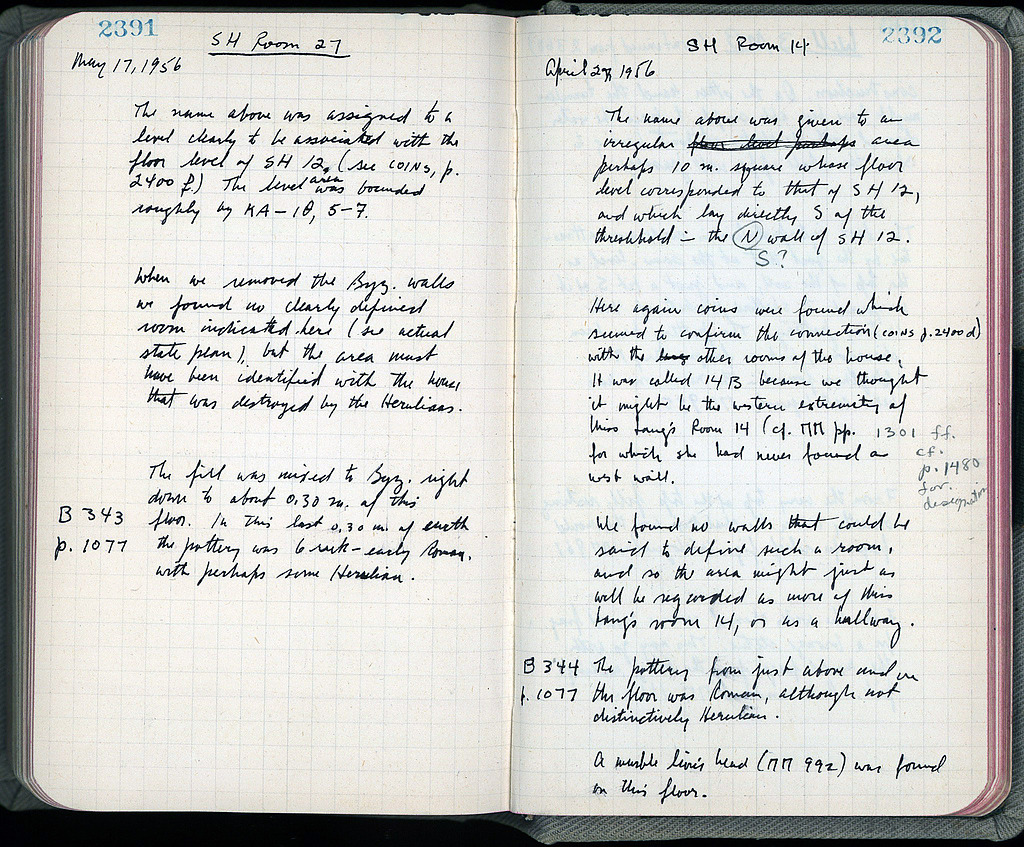 2391
SH Room 27
May 17, 1956
The name above was assigned to a
level clearly to be associated with the
floor level of SH 12, (see COINS, p.
2400 f.) The level area was bounded
roughly by KA–ΙΘ, 5–7.
When we removed the Byz. walls
we found no clearly defined
room indicated here (see actual
state plan), but the area must
have been identified with the house
that was destroyed by the Herulians.
The fill was mixed to Byz. right
down to about 0.30 m. of this
B 343
floor. In this last 0.30 m. of earth
p. 1077
the pottery was Greek – early Roman,
with perhaps some Herulian.
2392
SH Room 14
April 1956
The name above was given to an
irregular floor level perhaps area
perhaps 10 m. square whose floor
level corresponded to that of SH 12,
and which lay directly S of the
threshhold in the N wall of SH 12.
S?
Here again coins were found which
seemed to confirm the connection (COINS p. 2400 d)
with the other rooms of the house.
It was called 14 B because we thought
it might be the western extremity of
Miss Lang's Room 14 (cf. ΠΠ pp. 1301 ff.
for which she had never found a
west wall.
cf.
p. 1480
for
designation
We found no walls that could be
said to define such a room,
and so the area might just as
well be regarded as more of Miss
Lang's room 14, or as a hallway.
B 344
The pottery from just above and on
p. 1077
this floor was Roman, although not
distinctively Herulian.
A marble lion's head (ΠΠ 992) was found
on this floor.